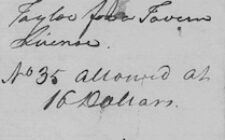 Taylor for a Tavern
Lisense.
No 35 allowed at
16 Dollars.